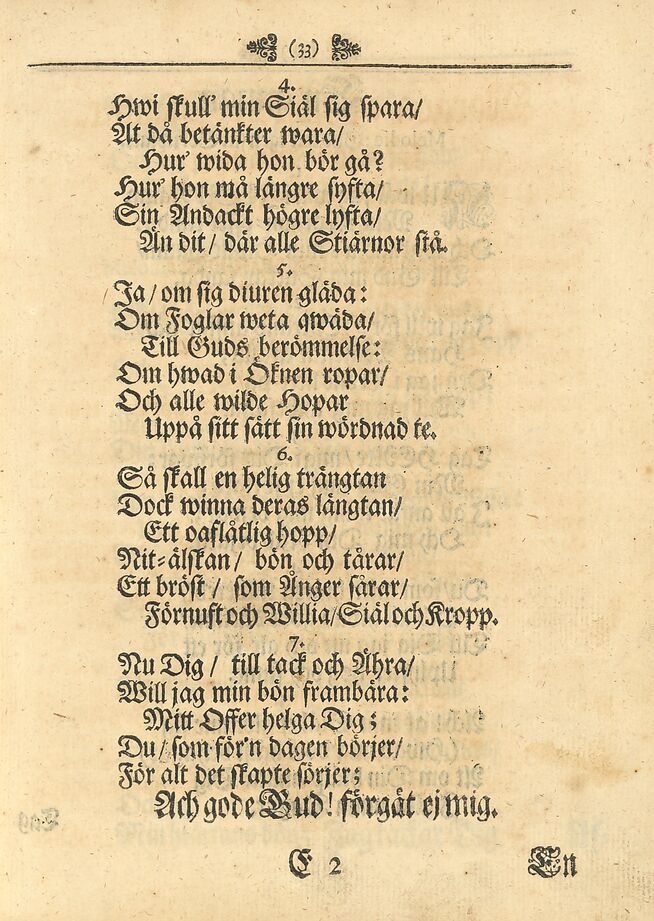 (33)
4.
Hwi skull' min Siäl sig spara/
Åt då betänkter wara/
Hur' wida hon bör gå?
Hur' hon må längre syfta/
Sin Andackt högre lyfta/
Än dit/ där alle Stiärnor stå.
5.
Ja/ om sig diuren gläda:
Om Foglar weta qwäda/
Till Guds berömmelse:
Om hwad i Öknen ropar/
Och alle wilde Hopar
Uppå sitt sätt sin wördnad te.
6.
Så skall en helig trängtan
Dock winna deras längtan/
Ett oaflåtlig hopp/
Nit-älskan/ bön och tårar/
Ett bröst/ som Ånger sårar/
Förnuft och Willia/ Siäl och Kropp.
7.
Nu Dig/ till tack och Ähra/
Will jag min bön frambära:
Mitt Offer helga Dig;
Du/ som för'n dagen börjer/
För alt det skapte sörjer;
Ach gode Gud! förgät ej mig.
E 2
En